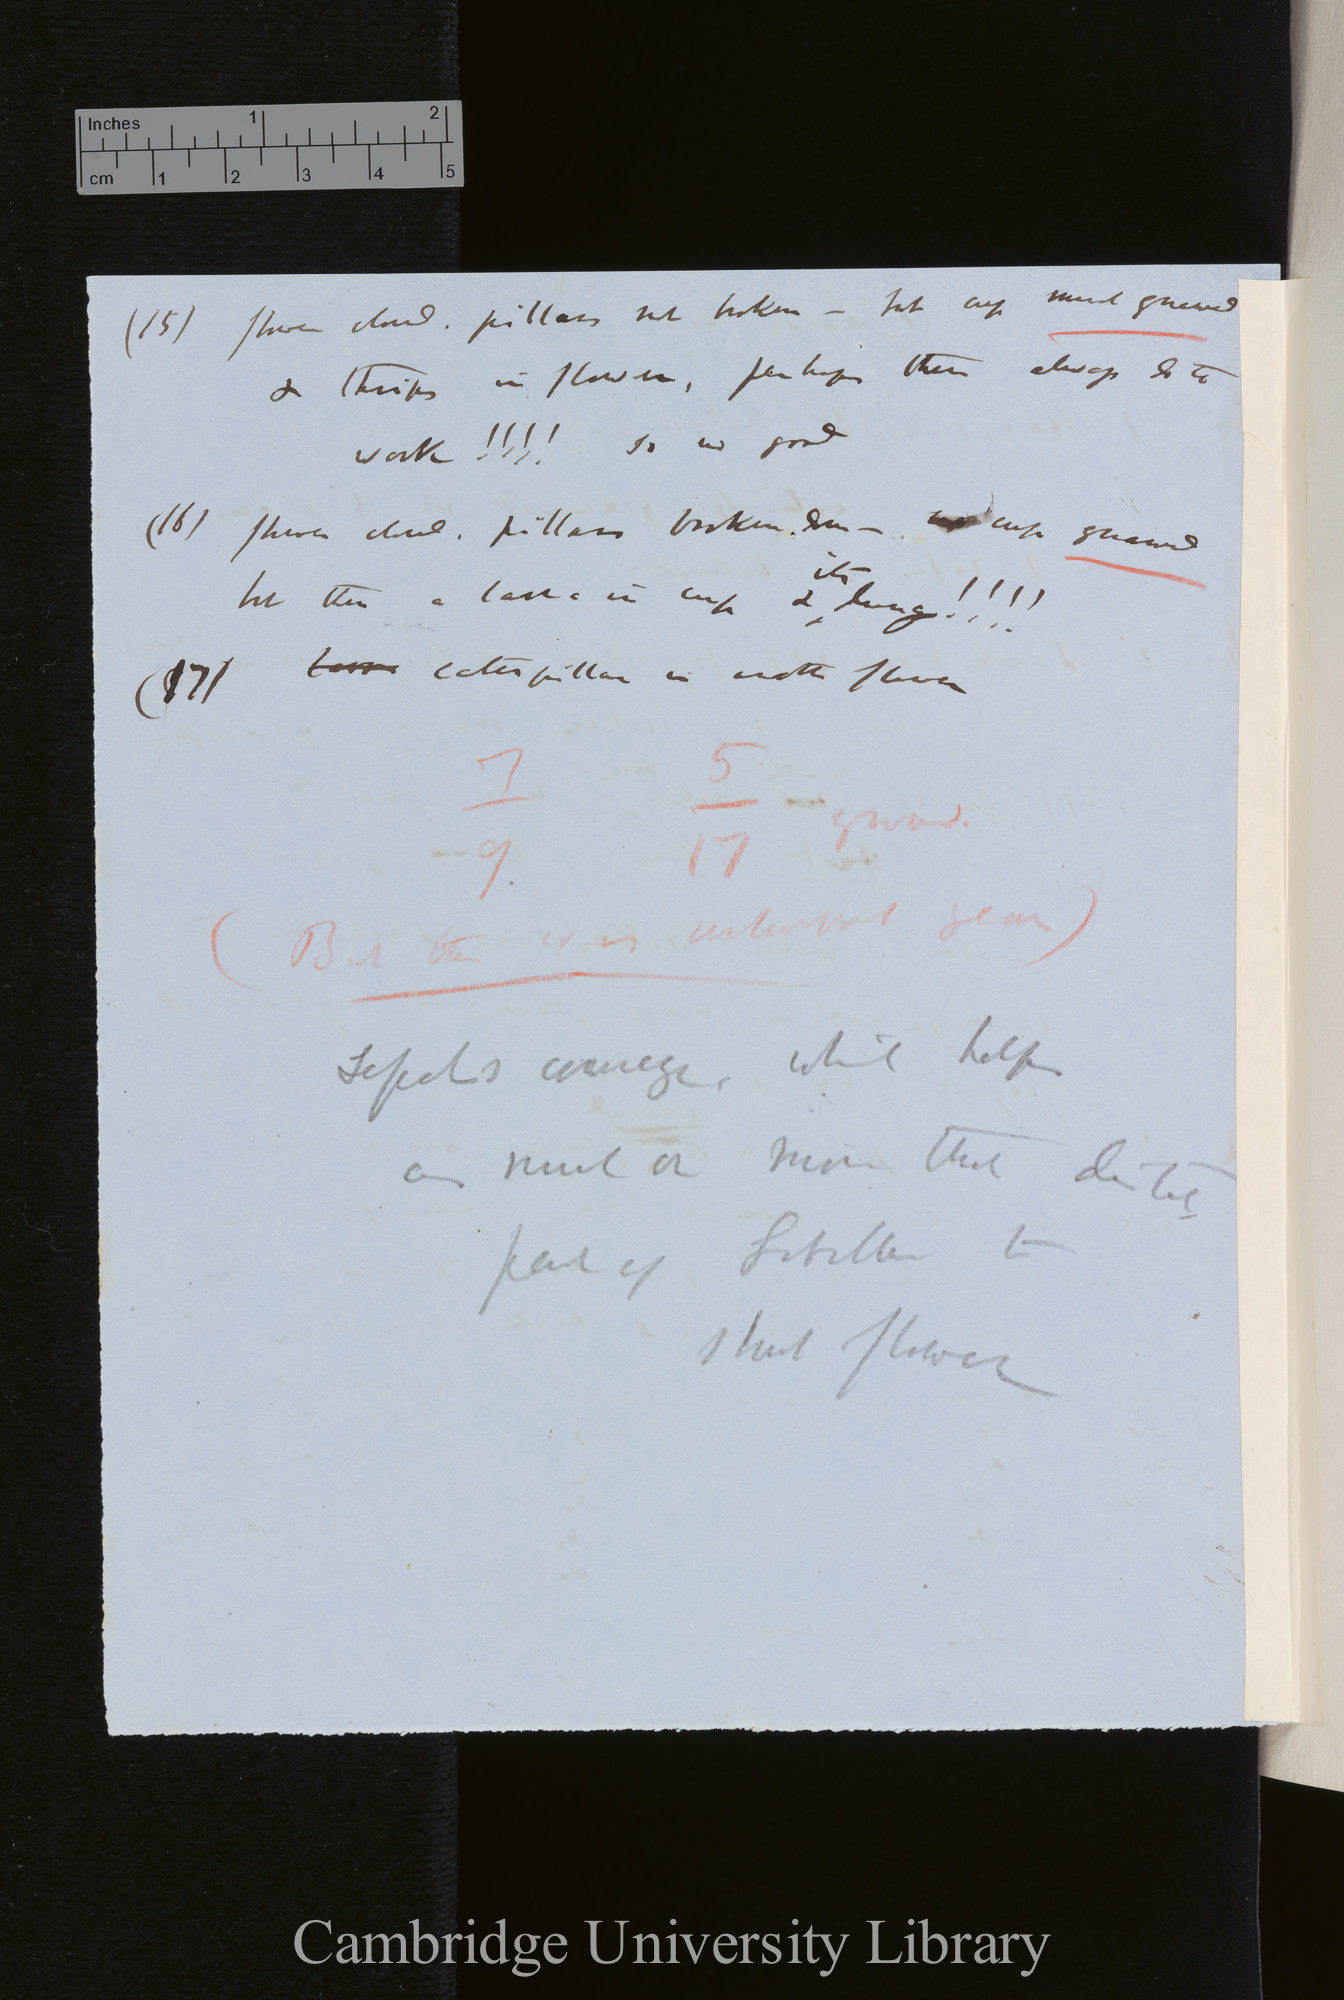 Inches 1 2
cm 1 2 3 4 5
(15) flower closed. pillars not broken — but cup much gnawed
& thrips in flower, perhaps these always do the
work !!!! so no good
(16) flower closed. pillars broken down —. cup gnawed
but then a larva in cup & its dung !!!!
(17) caterpillar in another flower
7 5
9. 17 gnawed.
(But this was year)
Sepals converge, which helps
as much or more that
part of Labellum to
shut flower
Cambridge University Library